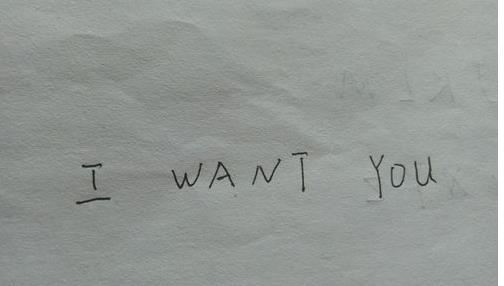 I WANT YOU